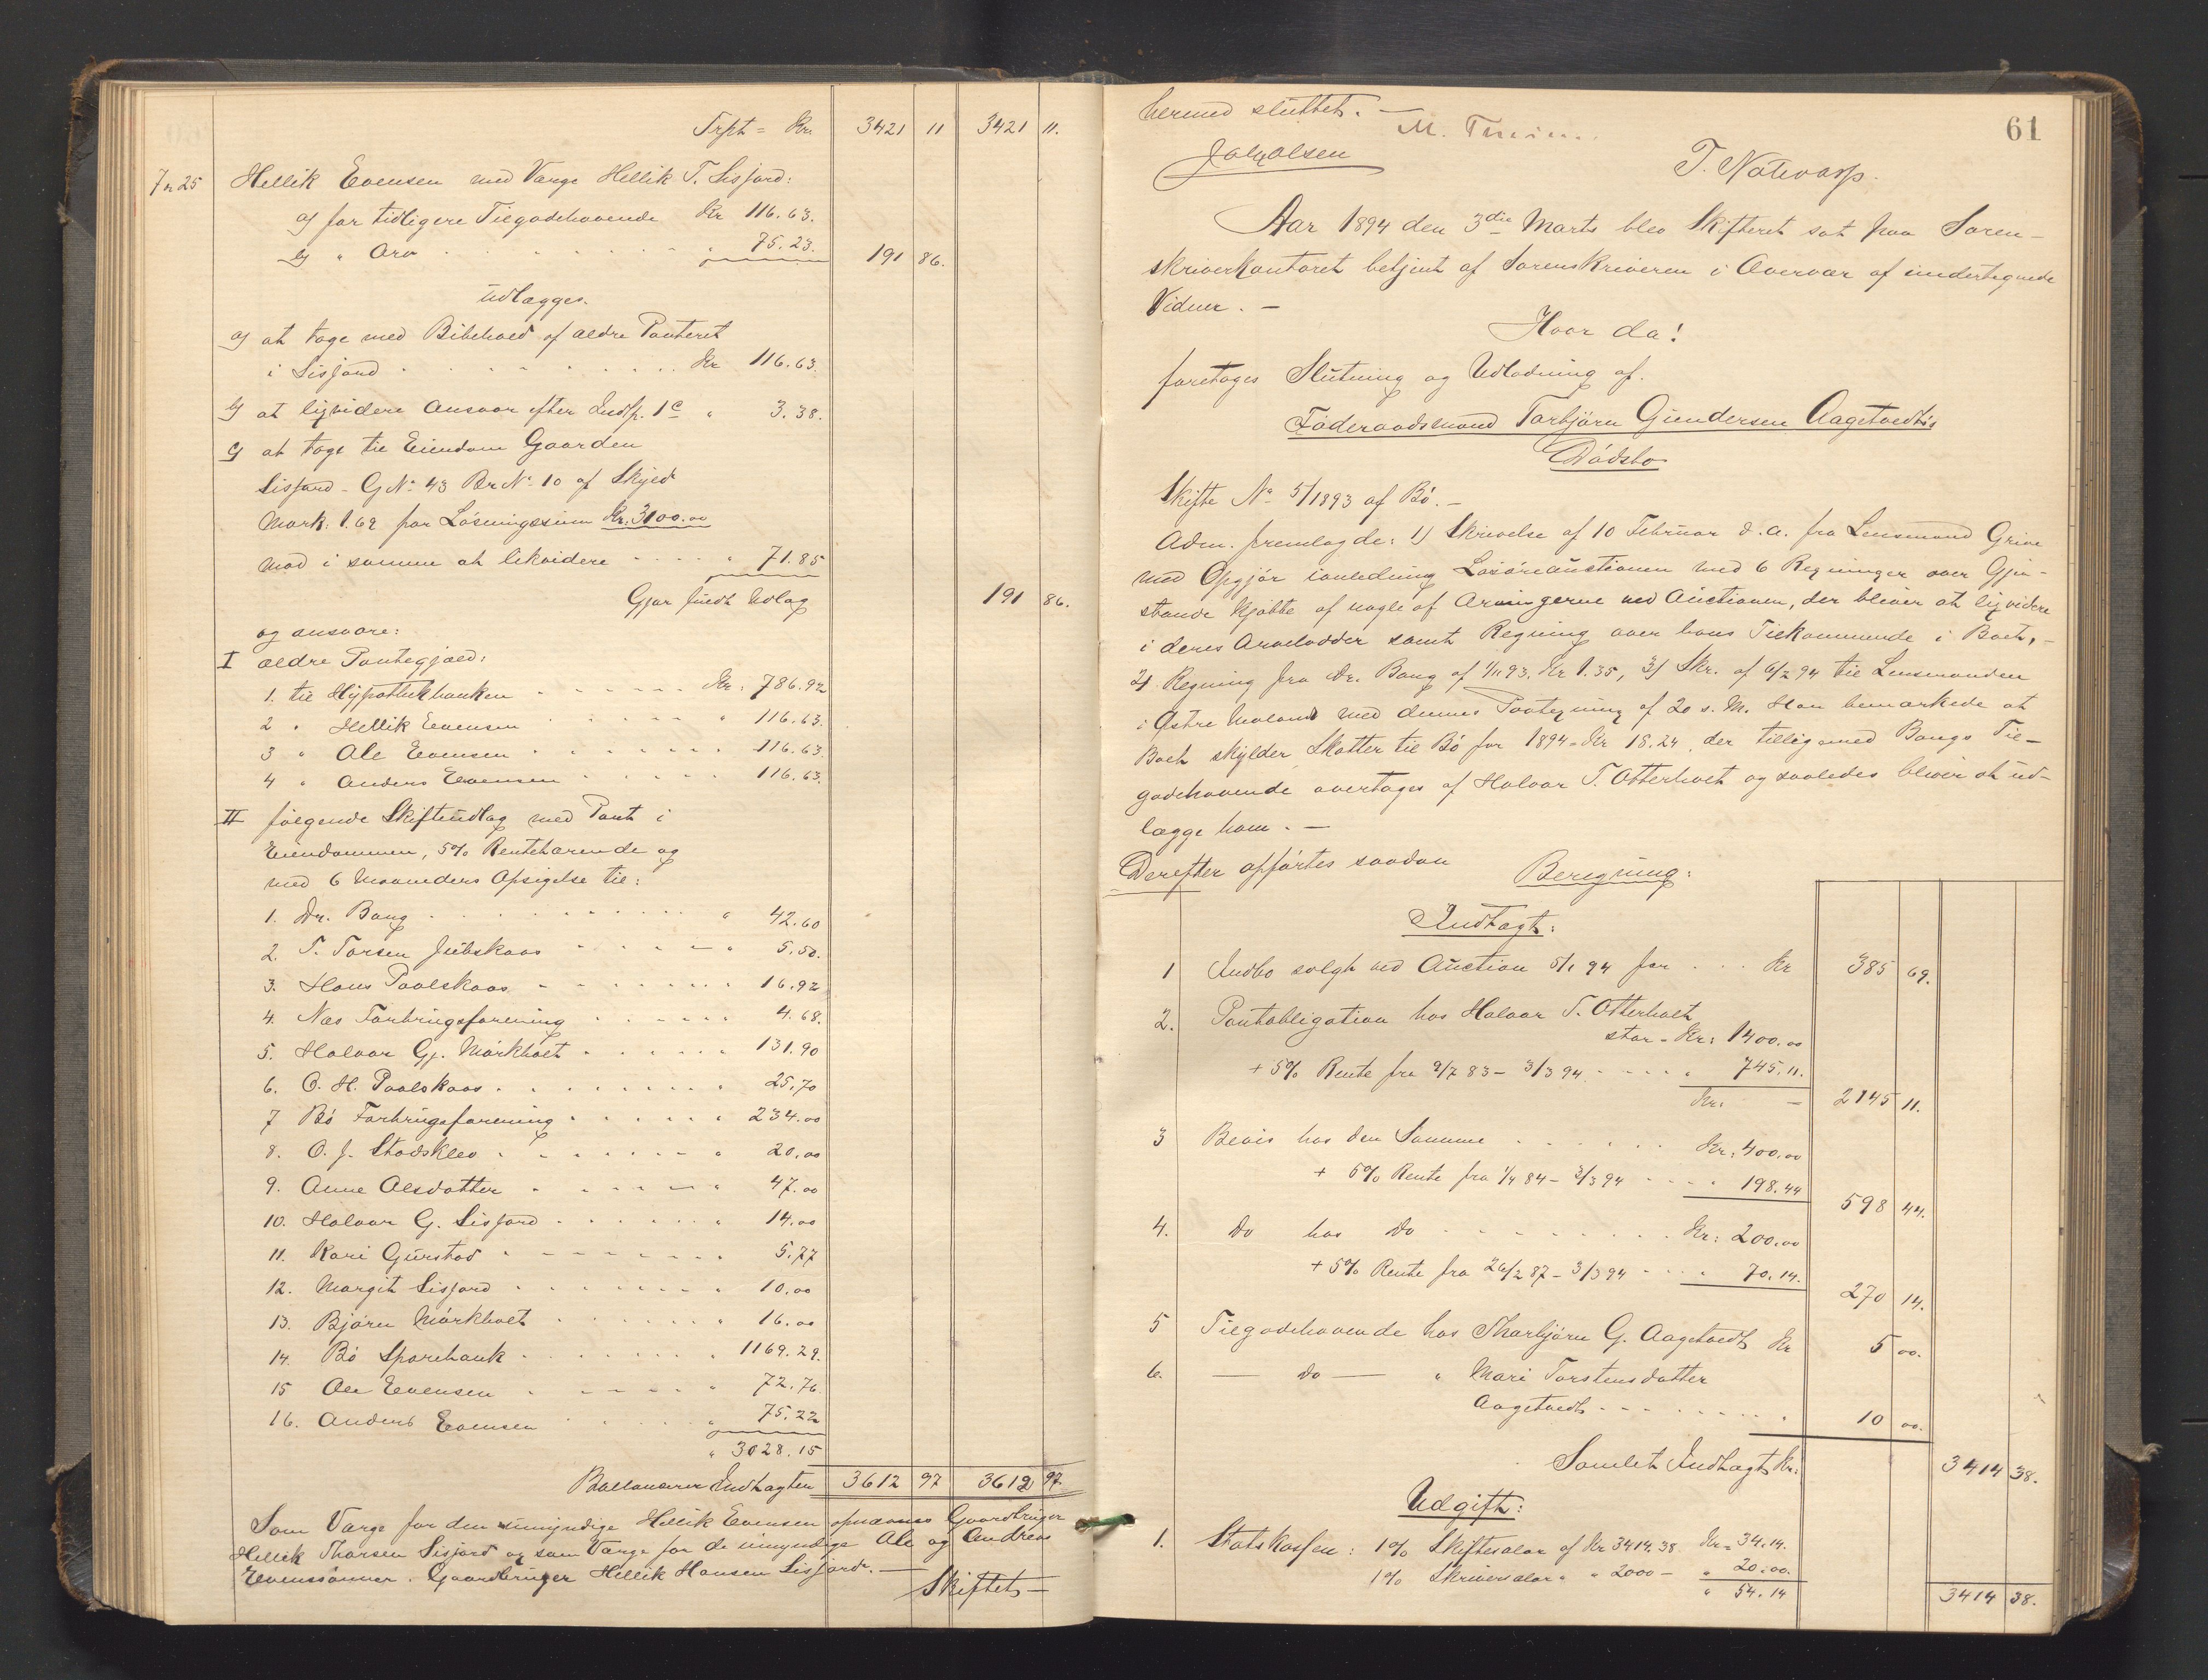 Trpt = Kr. 3421 11 3421 11.
7 N 25 Hellik Evensen med Værge Hellik T. Sisjord:
a) for tidligere Tilgodehavende Kr 116.63.
b) " Arv " 75.23. 191 86.
Udlægges.
a) at tage med Bibehold af ældre Panteret
i Sisjord Kr 116.63.
b) at liqvidere Ansvar efter Indtp. 1c " 3.38.
c) at tage til Eiendom Gaarden
Sisjord - GNo 43 BrNo 10 af Skyld
Mark: 1.69 for Løsningssum Kr. 3100.00
mod i samme at likvidere " 71.85
Gjør fuldt Udlæg 191 86.
og ansvare:
I ældre Pantegjæld:
1. til Hypothekbanken Kr: 786.92
2 " Hellik Evensen " 116.63.
3 " Ole Evensen " 116.63
4 " Anders Evensen " 116.63.
II følgende Skifteudlæg med Pant i
Eiendommen, 5% Rentebærende og
med 6 Maaneders Opsigelse til:
1. Dr. Bang " 42.60
2. T. Torsen Julskaas " 5.50.
3. Hans Paalskaas " 16.92
4. Næs Forbrugsforening 4.68.
5. Halvor Gj. Mørkholt " 131.90
6. O. H. Paalskaas " 25.70
7 Bø Forbrugsforening " 234.00
8. O. J. Stadsklev " 20.00
9. Anne Olsdatter " 47.00
10. Halvor G. Sisjord " 14.00
11. Kari Gurstad 5.77
12. Margit Sisjord " 10.00
13. Bjørn Mørkholt " 16.00
14. Bø Sparebank " 1169.29.
15 Ole Evensen " 72.76
16. Anders Evensen " 75.22
" 3028.15
Ballancerer Indtægten 3612 97 3612 97.
Som Værge for den umyndige Hellik Evensen opnævnes Gaardbruger
Hellik Thorsen Sisjord og som Værge for de umyndige Ole og Andreas
Evenssønner. Gaardbruger Hellik Hansen Sisjord. —
Skiftet —
61
hermed sluttet. —
Joh. Olsen
T. Notevarp.
Aar 1894 den 3die Marts blev Skifteret sat paa Soren-
skriverkontoret betjent af Sorenskriveren i Overvær af undertegnede
Vidner. —
Hvor da!
foretoges Slutning og Udlodning af.
Føderaadsmand Torbjørn Gundersen Aagetvedts
Dødsbo
Skifte No 5/1893 af Bø. —
Adm. fremlagde: 1) Skrivelse af 10 Februar d. a. fra Lensmand Grive
med Opgjør ianledning Løsøreauctionen med 6 Regninger over Gjen-
stande kjøbte af nogle af Arvingerne ved Auctionen, der bliver at liqvidere
i deres Arvelodder samt Regning over hans Tilkommende i Boet, -
2) Regning fra Dr. Bang af 1/11 93. Kr 1.35, 3) Skr. af 6/2 94 til Lensmanden
i Østre Moland med dennes Paategning af 20 s. M. Han bemærkede at
Boet skylder Skatter til Bø for 1894 = Kr 18.24, der tilligemed Bangs Til-
godehavende overtages af Halvor T. Otterholt og saaledes bliver at ud-
lægge ham. —
Derefter opførtes saadan Beregning:
Indtægt:
1 Indbo solgt ved Auction 5/1 94 for Kr 385 69.
2. Pantobligation hos Halvor T. Otterholt
stor - Kr: 1400.00
+ 5% Rente fra 9/7 83 - 3/3 94 " 745.11.
Kr: — 2145 11.
3 Bevis hos den Samme Kr: 400.00
+ 5% Rente fra 1/4 84 - 3/3 94 " 198.44 598 44.
4. Do hos Do Kr: 200.00
+ 5% Rente fra 26/2 87 - 3/3 94 " 70.14. 270 14.
5 Tilgodehavende hos Thorbjørn G. Aagetvedt Kr 5 00.
6. — Do — " Mari Torstensdatter
Aagetvedt " 10 00.
Samlet Indtægt Kr: 3414 38.
Udgift:
1. Statskassen: 1% Skiftesalær af Kr 3414.38 Kr = 34.14.
1% Skriversalær " " 2000 - " 20.00.
" 54.14 3414 38.